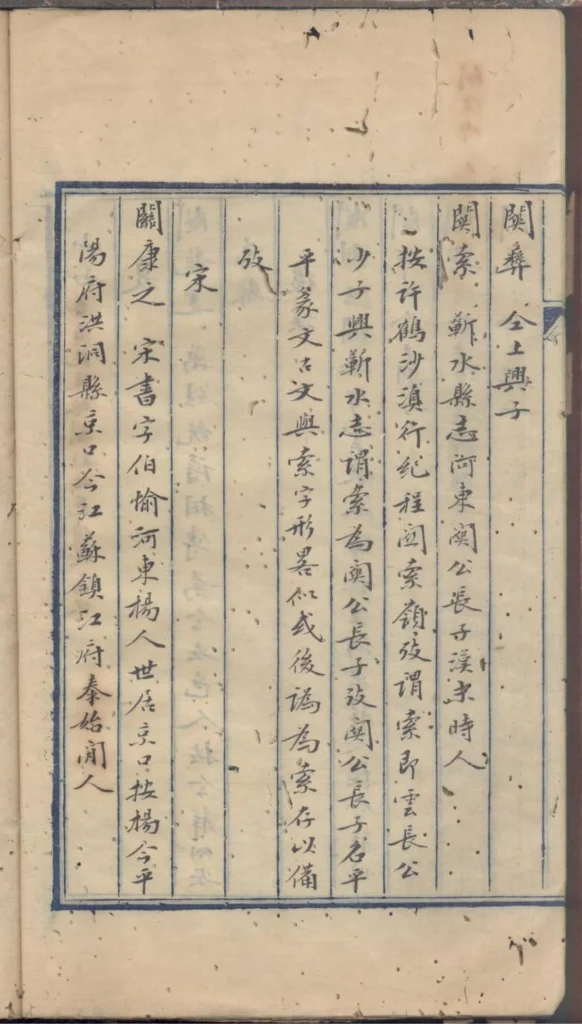 關彝　仝上興子
關索　蘄水縣志河東關公長子漢末時人
按許鶴沙滇行紀程關索嶺攷謂索即雲長公
少子興蘄水志謂索為關公長子攷關公長子名平
平篆文古文與索字形畧似或後譌為索存以備
攷
宋
關康之　宋書字伯愉河東楊人世居京口按楊今平
陽府洪洞縣京口今江蘇鎮江府泰始間人